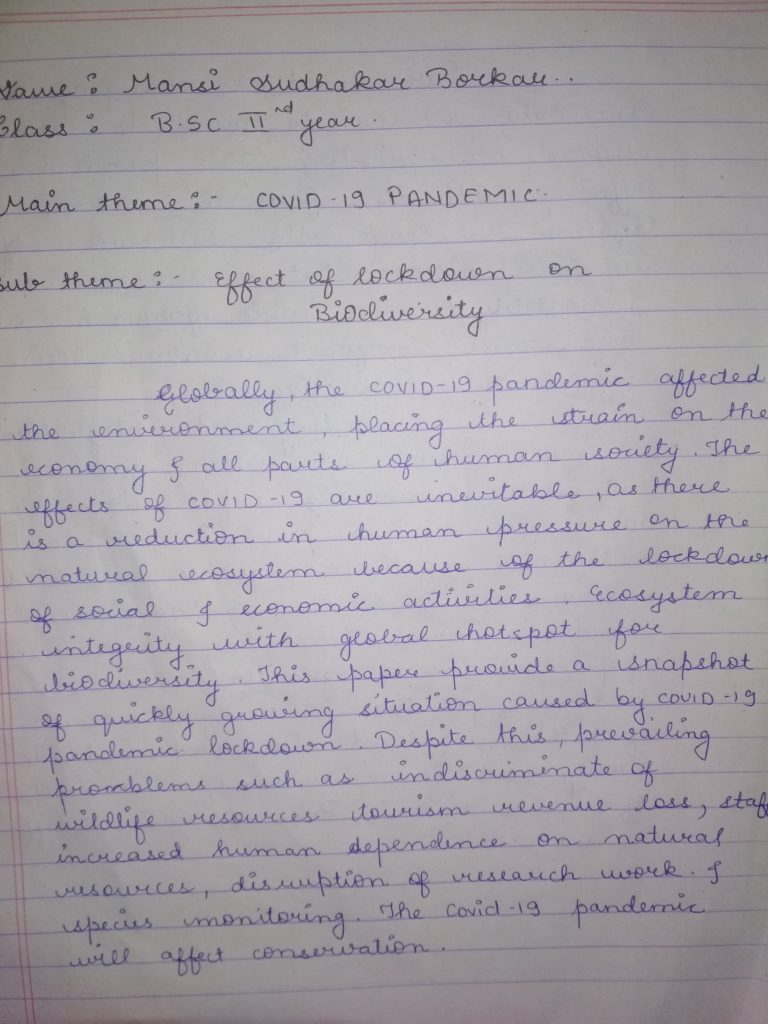 Name : Mansi Sudhakar Borkar..
Class : B.SC II nd year.
Main theme :- COVID-19 PANDEMIC.
Sub theme :- Effect of lockdown on
Biodiversity
Globally, the COVID-19 pandemic affected
the environment, placing the strain on the
economy & all parts of human society. The
effects of COVID-19 are inevitable, as there
is a reduction in human pressure on the
natural ecosystem because of the lockdown
of social & economic activities. Ecosystem
integerity with global hotspot for
biodiversity. This paper provide a snapshot
of quickly growing situation caused by COVID-19
pandemic lockdown. Despite this, prevailing
promblems such as indiscriminate of
wildlife resources tourism revenue loss, staff
increased human dependence on natural
resources, disruption of research work. &
species monitoring. The Covid-19 pandemic
will affect conservation.